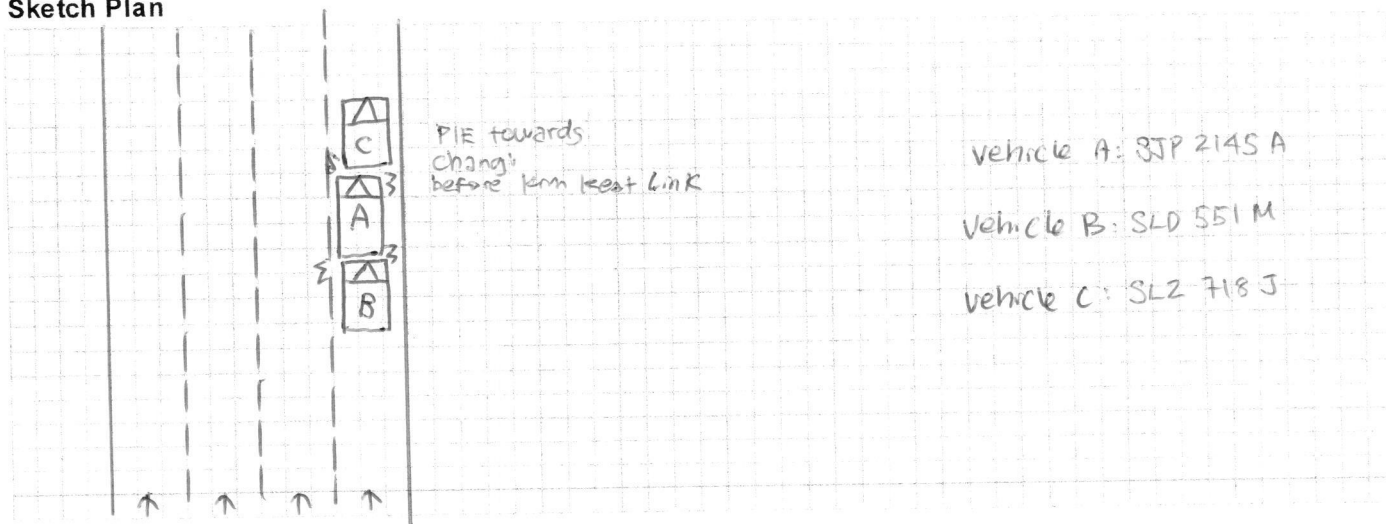 Sketch Plan
C
A
B
PIE towards
Changi
before
Link
Vehicle A: SJP 2145 A
Vehicle B: SLD 551 M
Vehicle C: SLZ 718 J